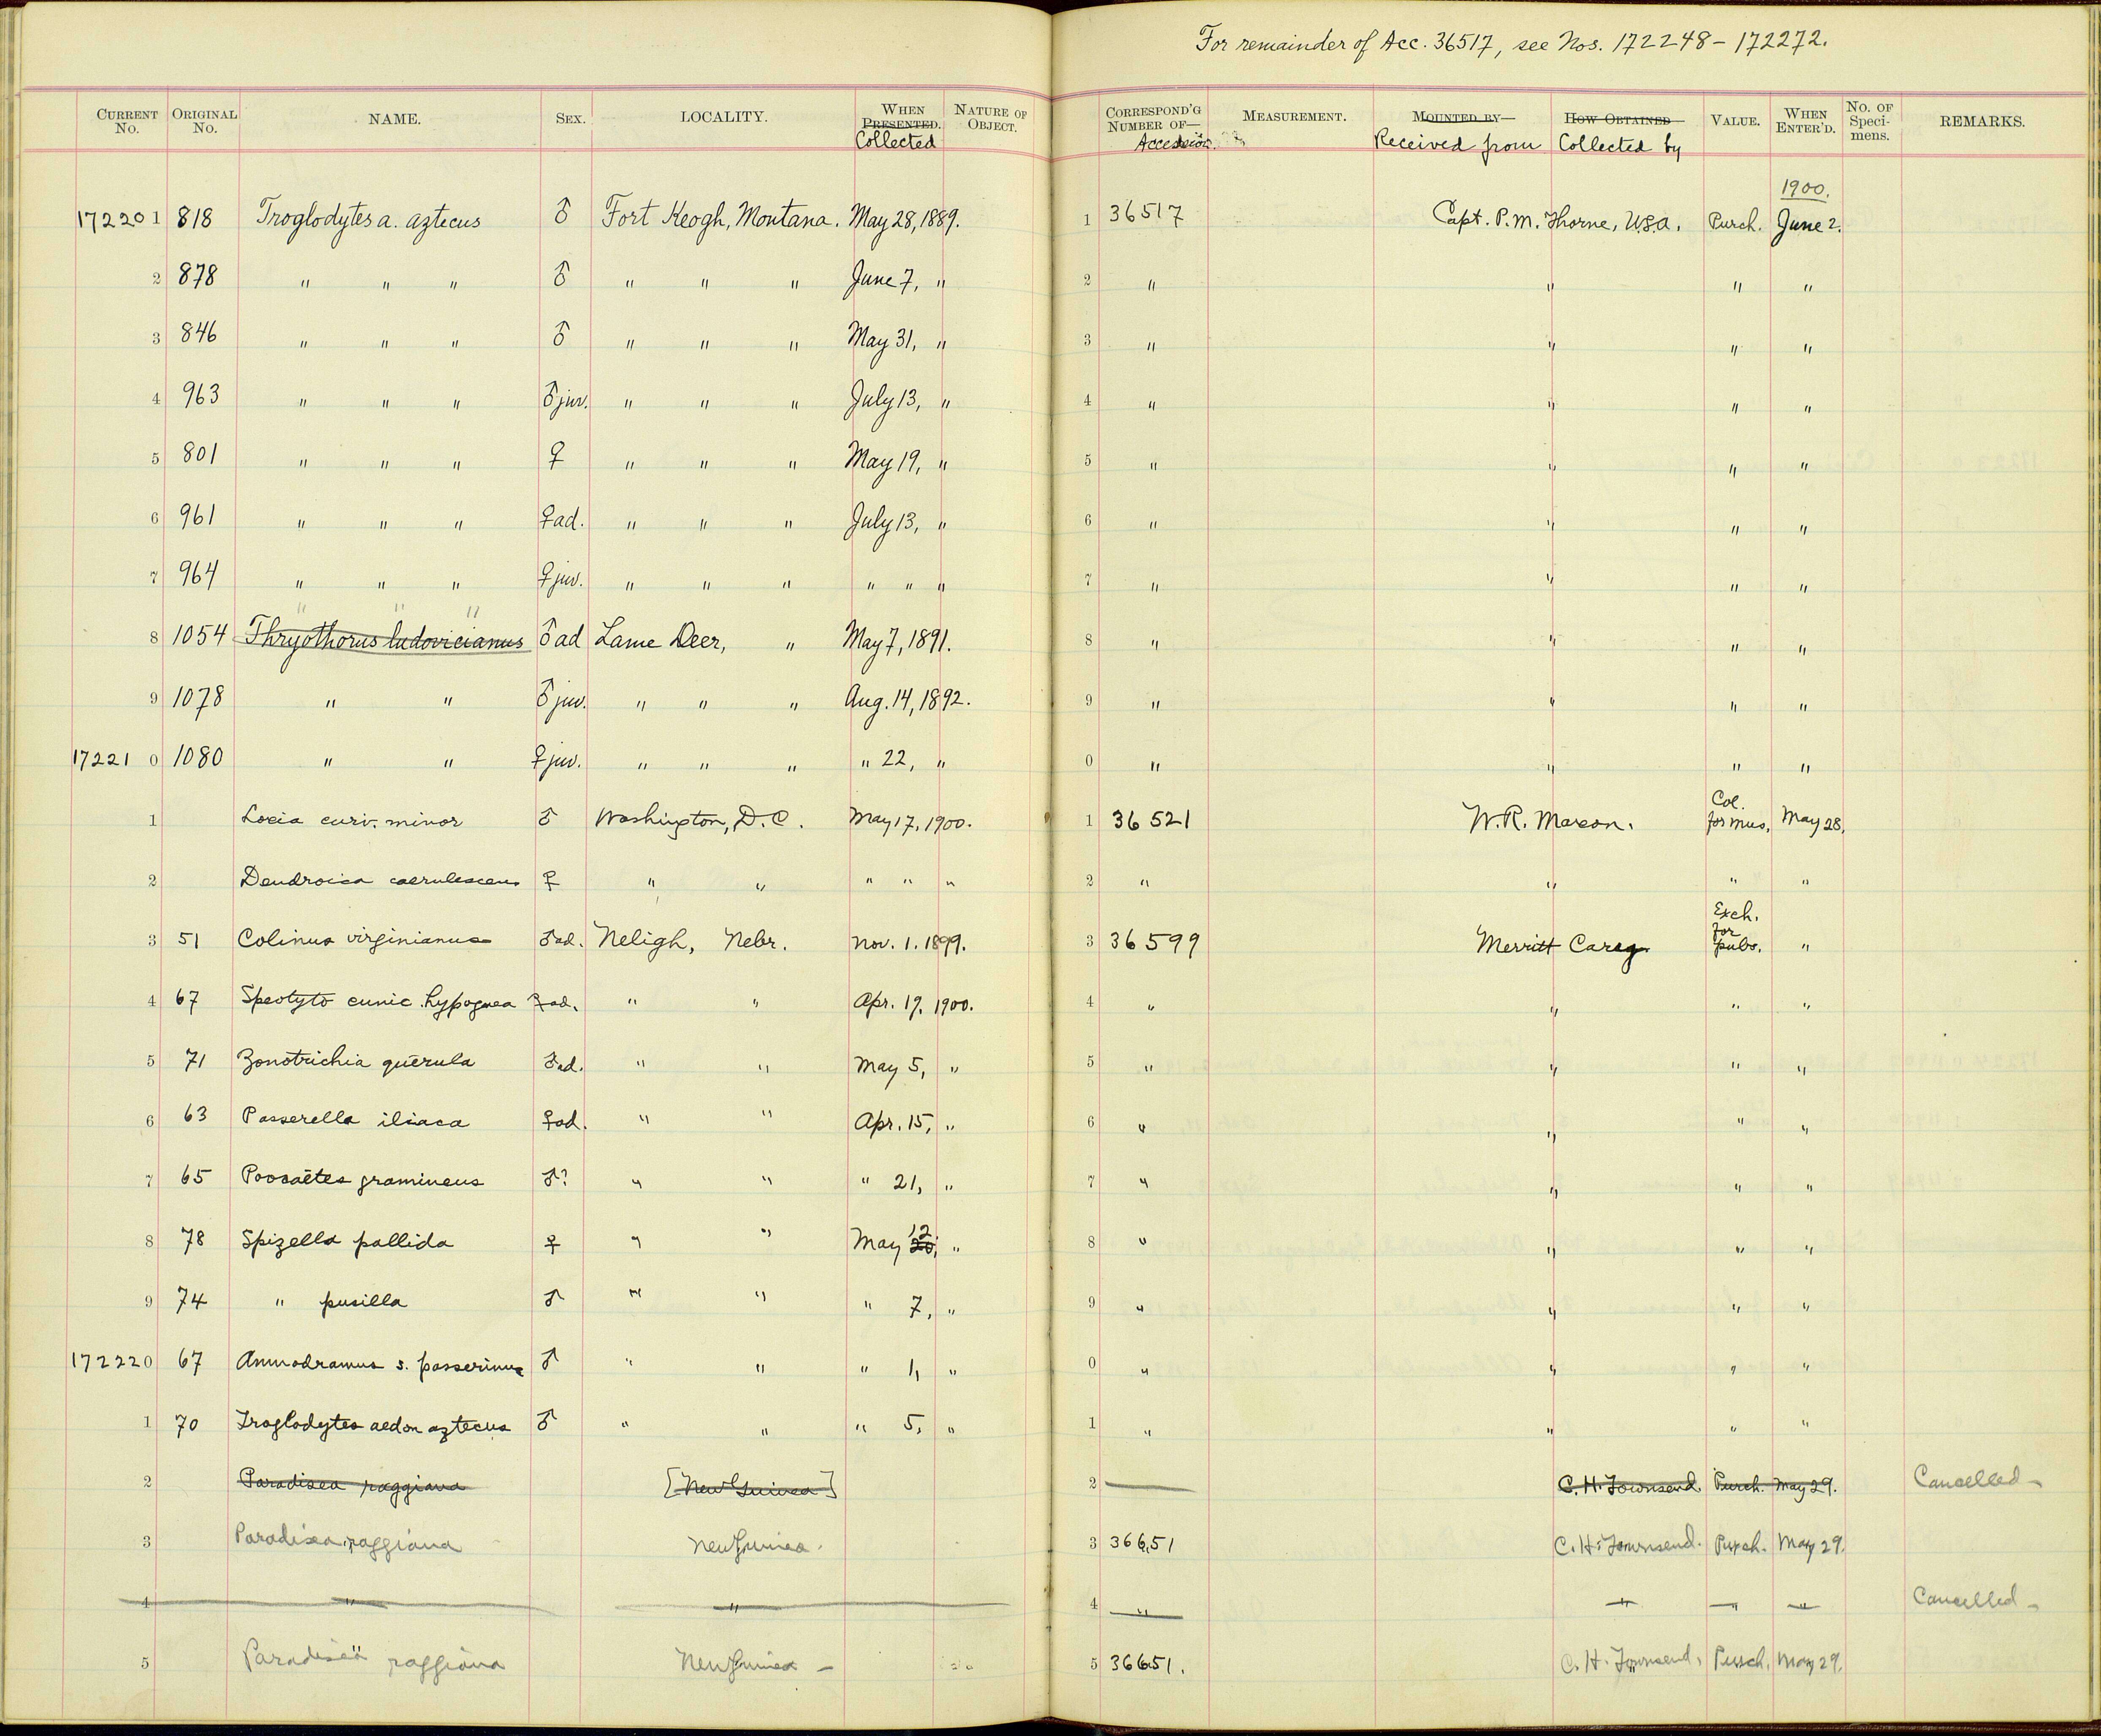 For remainder of Acc. 36517, see Nos. 172248 – 172272.
CURRENT No. ORIGINAL No. NAME. SEX. LOCALITY. WHEN PRESENTED. Collected NATURE OF OBJECT. CORRESPOND'G NUMBER OF— Accession. MEASUREMENT. MOUNTED BY— Received from HOW OBTAINED Collected by VALUE. WHEN ENTER'D. No. OF Speci-mens. REMARKS.
1900.
172201 818 Troglodytes a. aztecus ♂ Fort Keogh, Montana. May 28, 1889. 1 36517 Capt. P. M. Thorne, U.S.A. Purch. June 2.
2 878 " " " ♂ " " " June 7, " 2 " " " "
3 846 " " " ♂ " " " May 31, " 3 " " " "
4 963 " " " ♂ juv. " " " July 13, " 4 " " " "
5 801 " " " ♀ " " " May 19, " 5 " " " "
6 961 " " " ♀ ad. " " " July 13, " 6 " " " "
7 964 " " " ♀ juv. " " " " " " 7 " " " "
" " "
8 1054 Thryothorus ludovicianus ♂ ad Lame Deer, " May 7, 1891. 8 " " " "
9 1078 " " ♂ juv. " " " Aug. 14, 1892. 9 " " " "
172210 1080 " " ♀ juv. " " " " 22, " 0 " " " "
1 Loxia curv. minor ♂ Washington, D.C. May 17, 1900. 1 36521 W. R. Maxon. Col. for Mus. May 28.
2 Dendroica caerulescens ♀ " " " " " 2 " " " "
3 51 Colinus virginianus ♂ ad. Neligh, Nebr. Nov. 1. 1899. 3 36599 Merritt Carey. Exch. for pubs. "
4 67 Speotyto cunic. hypogaea ♀ ad. " " Apr. 19, 1900. 4 " " " "
5 71 Zonotrichia querula ♂ ad. " " May 5, " 5 " " " "
6 63 Passerella iliaca ♀ ad. " " Apr. 15, " 6 " " " "
7 65 Poocaëtes gramineus ♂? " " " 21, " 7 " " " "
8 78 Spizella pallida ♀ " " May 12 20, " 8 " " " "
9 74 " pusilla ♂ " " " 7, " 9 " " " "
172220 67 Ammodramus s. passerinus ♂ " " " 1, " 0 " " " "
1 70 Troglodytes aedon aztecus ♂ " " " 5, " 1 " " " "
2 Paradisea raggiana [New Guinea] 2 — C. H. Townsend. Purch. May 29. Cancelled —
3 Paradisea raggiana New Guinea. 3 36651 C. H. Townsend. Purch. May 29.
4 " " 4 " " " " Cancelled —
5 Paradisea raggiana New Guinea — 5 36651. C. H. Townsend, Purch. May 29.